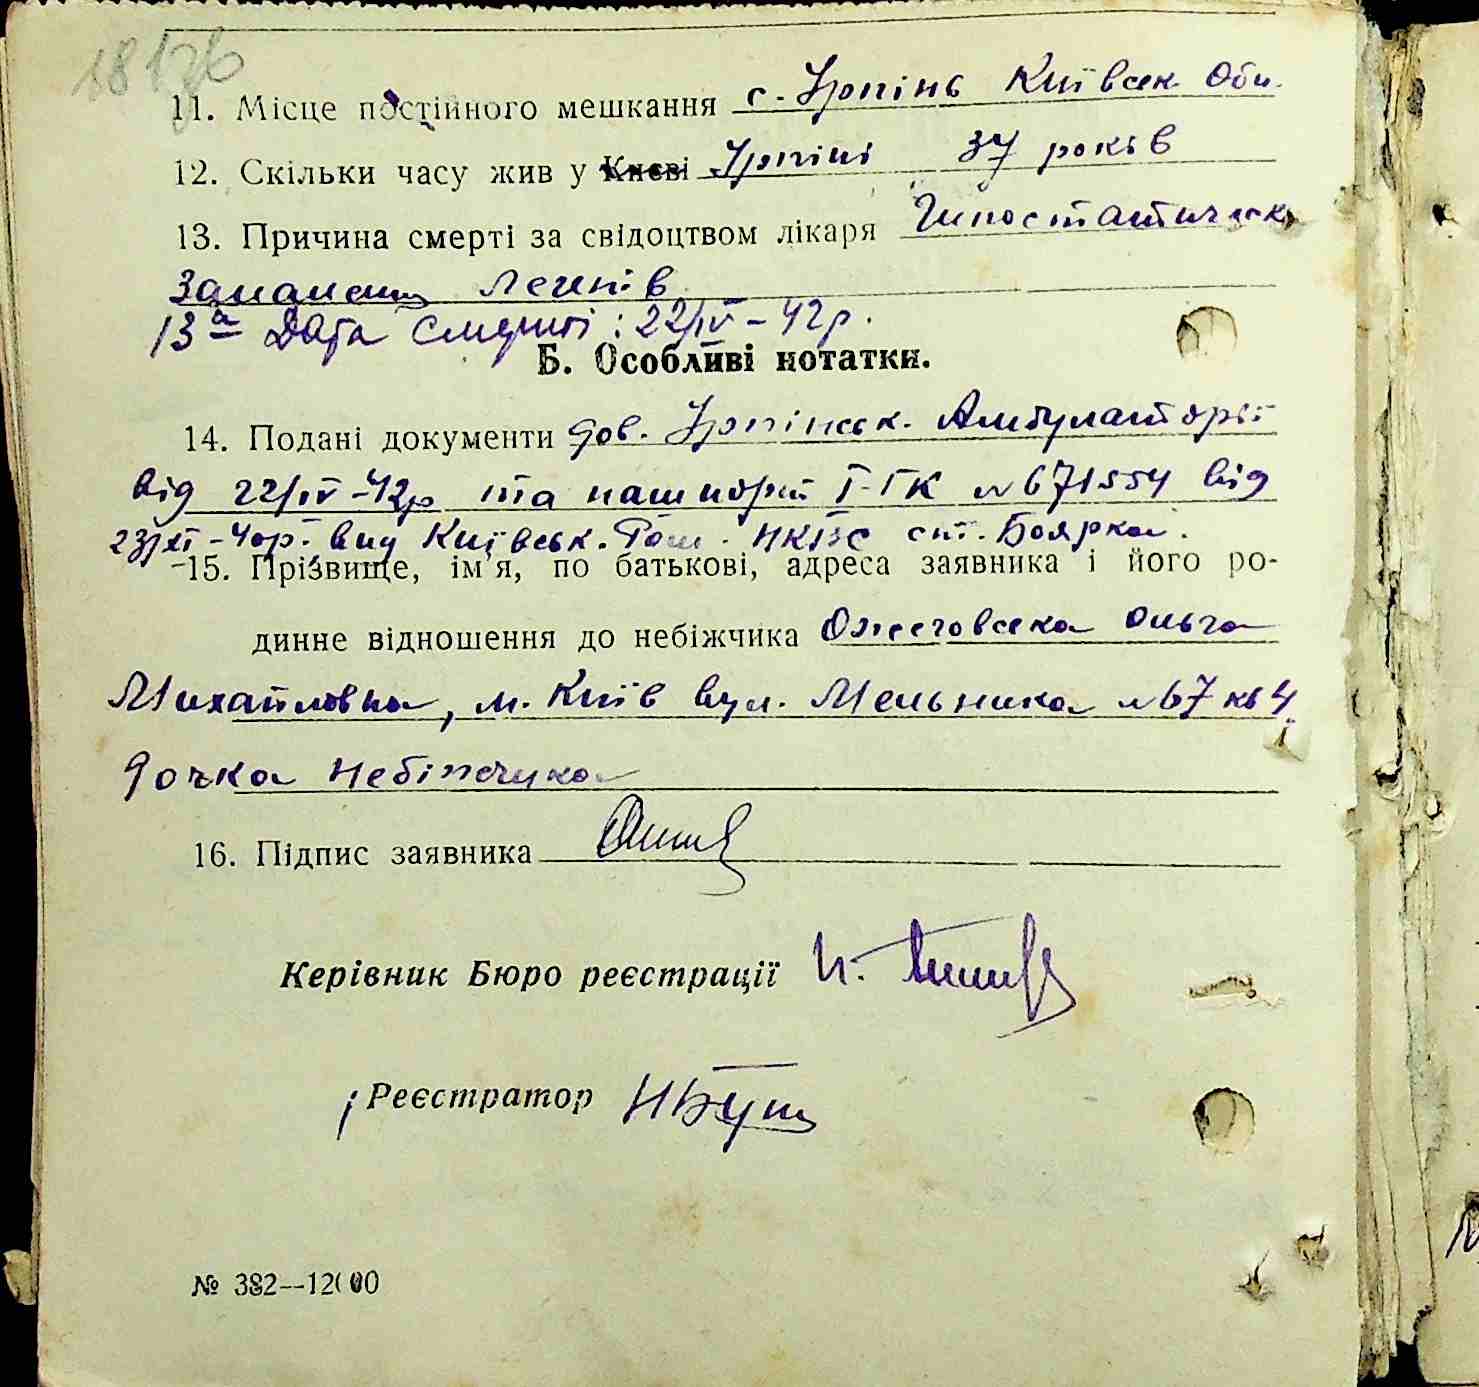 11. Місце постійного мешкання с. Ірпінь Київськ. Обл.
12. Скільки часу жив у Києві Ірпіні 37 років
13. Причина смерті за свідоцтвом лікаря Гипостатическ.
запаленн легенів
13а Дата смерті: 22/IV-42р.
Б. Особливі нотатки.
14. Подані документи дов. Ірпінськ. Амбулаторії
від 22/IV-42р та пашпорт I-ГК №671554 від
23/XI-40р. вид Київськ. НКВС ст. Боярка.
15. Прізвище, ім'я, по батькові, адреса заявника і його ро-
динне відношення до небіжчика Ожеговська Ольга
Михайловна, м. Київ вул. Мельника №67 кв 4
дочка небіжчика
16. Підпис заявника
Керівник Бюро реєстрації
Реєстратор
№ 382—12000